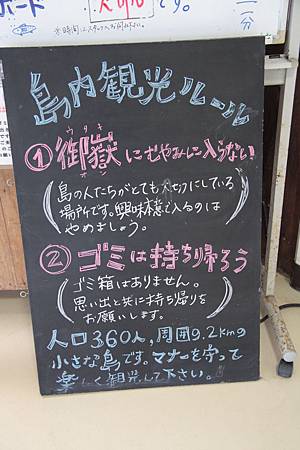 ボード
大助かりです。
一分
島内観光ルール
ウタキ
①御嶽にむやみに入らない
オン
(島の人たちがとても大切にしている
場所です。興味本意で入るのは
やめましょう。)
②ゴミは持ち帰ろう
(ゴミ箱はありません。
思い出と共に持ち帰りを
お願いします。)
人口360人,周囲9.2kmの
小さな島です。マナーを守って
楽しく観光して下さい。